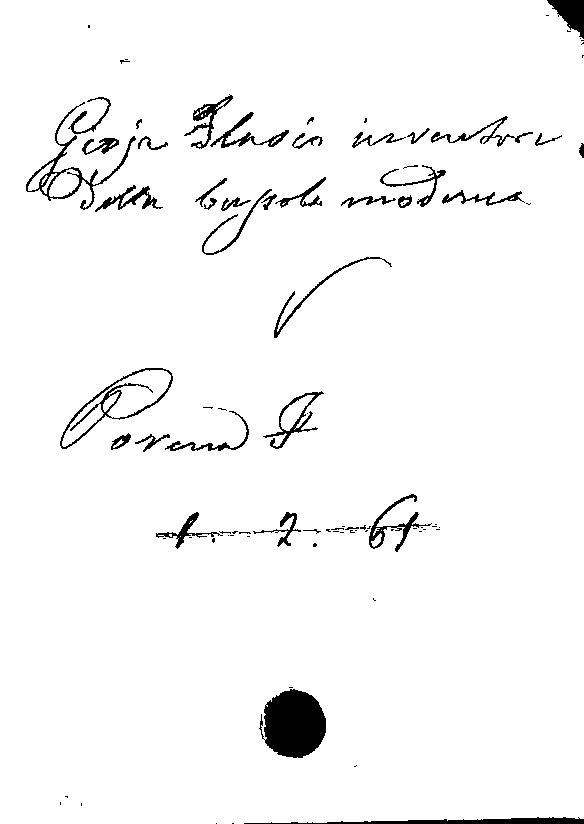 Gioja Flavio inventore
della bussola moderna
Porena F
1. 2. 61